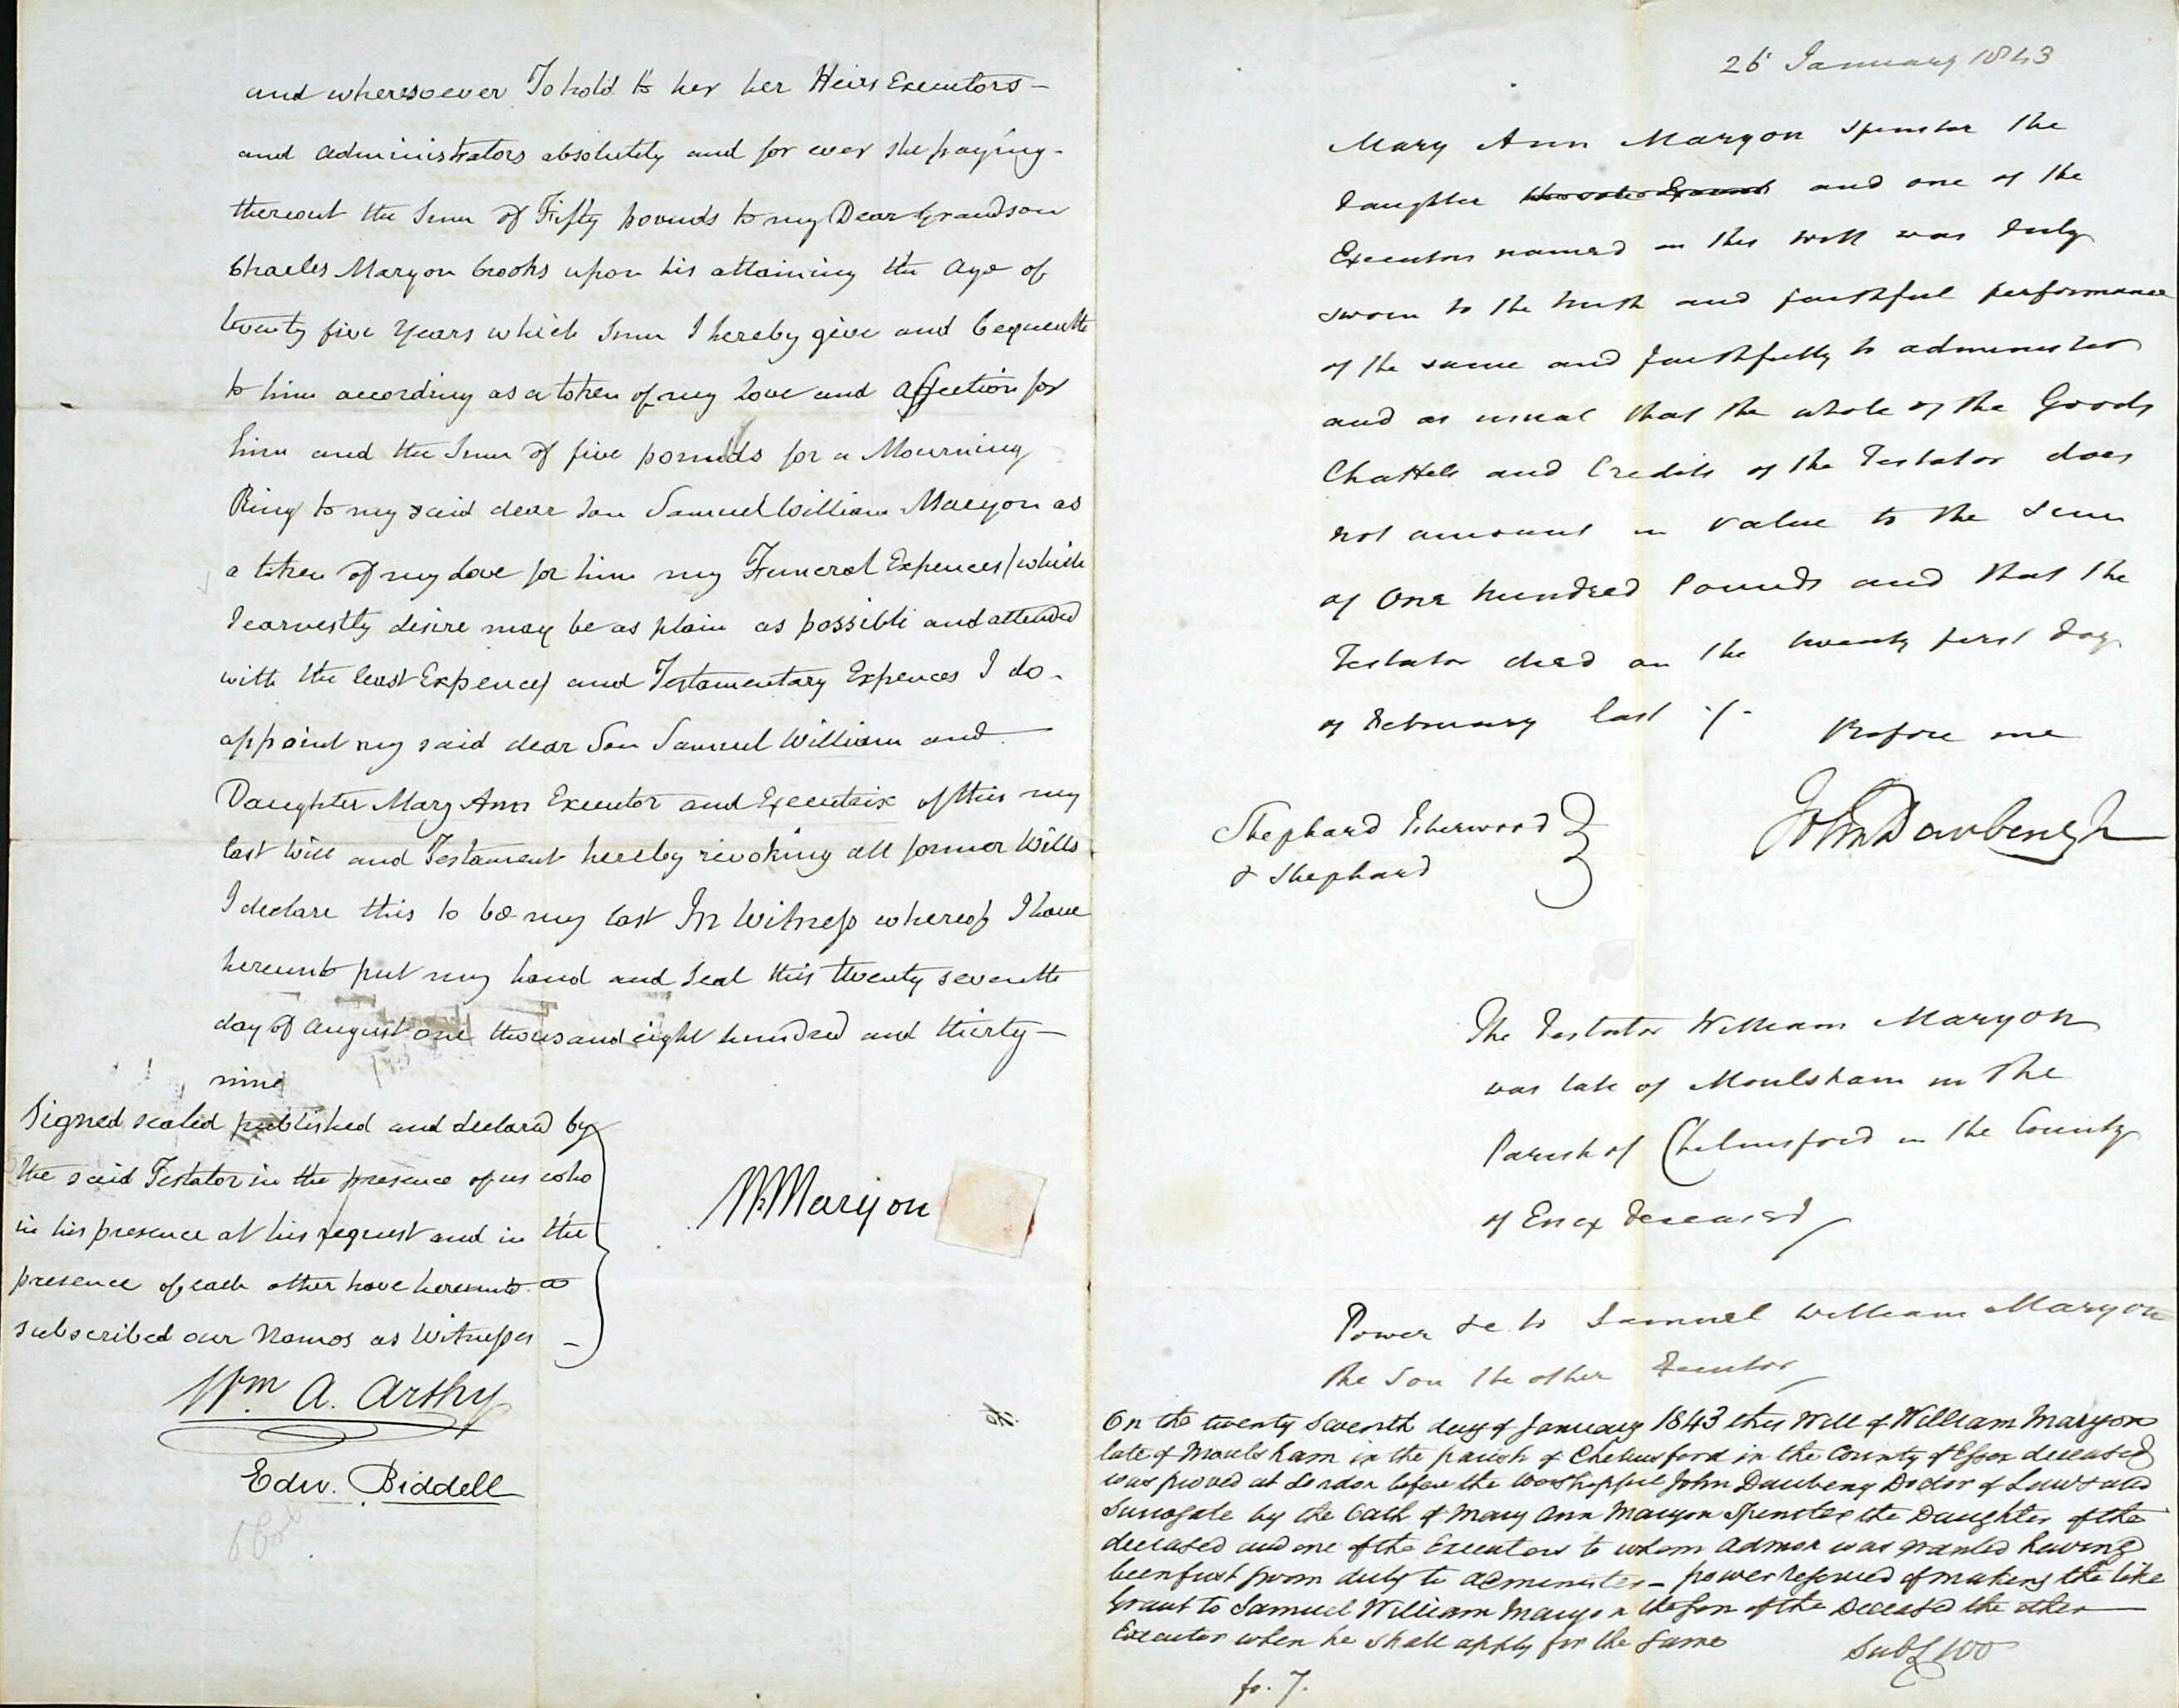 and wheresoever To hold to her her Heirs Executors -
and Administrators absolutely and for ever she paying -
thereout the Sum of Fifty pounds to my Dear Grandson
Charles Maryon Crooks upon his attaining the Age of
twenty five Years which Sum I hereby give and bequeath
to him according as a token of my love and Affection for
him and the Sum of five pounds for a Mourning
Ring to my said dear Son Samuel William Maryon as
a token of my Love for him my Funeral Expences (which
I earnestly desire may be as plain as possible and attended
with the least Expence) and Testamentary Expences I do -
appoint my said dear Son Samuel William and
Daughter Mary Ann Executor and Executrix of this my
last Will and Testament hereby revoking all former Wills
I declare this to be my last In Witness whereof I have
hereunto put my hand and Seal this twenty seventh
day of August one thousand eight hundred and thirty -
nine
Signed sealed published and declared by
the said Testator in the presence of us who
in his presence at his request and in the
presence of each other have hereunto
subscribed our Names as Witnesses -
Wm Maryon
Wm. A. Arthy
Edw. Biddell
26 January 1843
Mary Ann Maryon Spinster the
daughter and one of the
Executors named in this will was duly
sworn to the truth and faithful performance
of the same and faithfully to administer
and as usual that the whole of the Goods
Chattels and Credits of the Testator does
not amount in value to the Sum
of One hundred Pounds and that the
Testator died on the twenty first day
of February last -/-
Before me
John Daubeny
Shephard Isherwood
& Shephard
The Testator William Maryon
was late of Moulsham in the
Parish of Chelmsford in the County
of Essex deceased
Power &c to Samuel William Maryon
the Son the other Executor
On the twenty seventh day of January 1843 this Will of William Maryon
late of Moulsham in the parish of Chelmsford in the County of Essex deceased
was proved at London before the Worshipful John Daubeny Doctor of Laws and
Surrogate by the Oath of Mary Ann Maryon Spinster the Daughter of the
deceased and one of the Executors to whom Admon was granted having
been first sworn duly to administer - power reserved of making the like
Grant to Samuel William Maryon the son of the Deceased the other
Executor when he shall apply for the same
Sub £100
fo. 7.